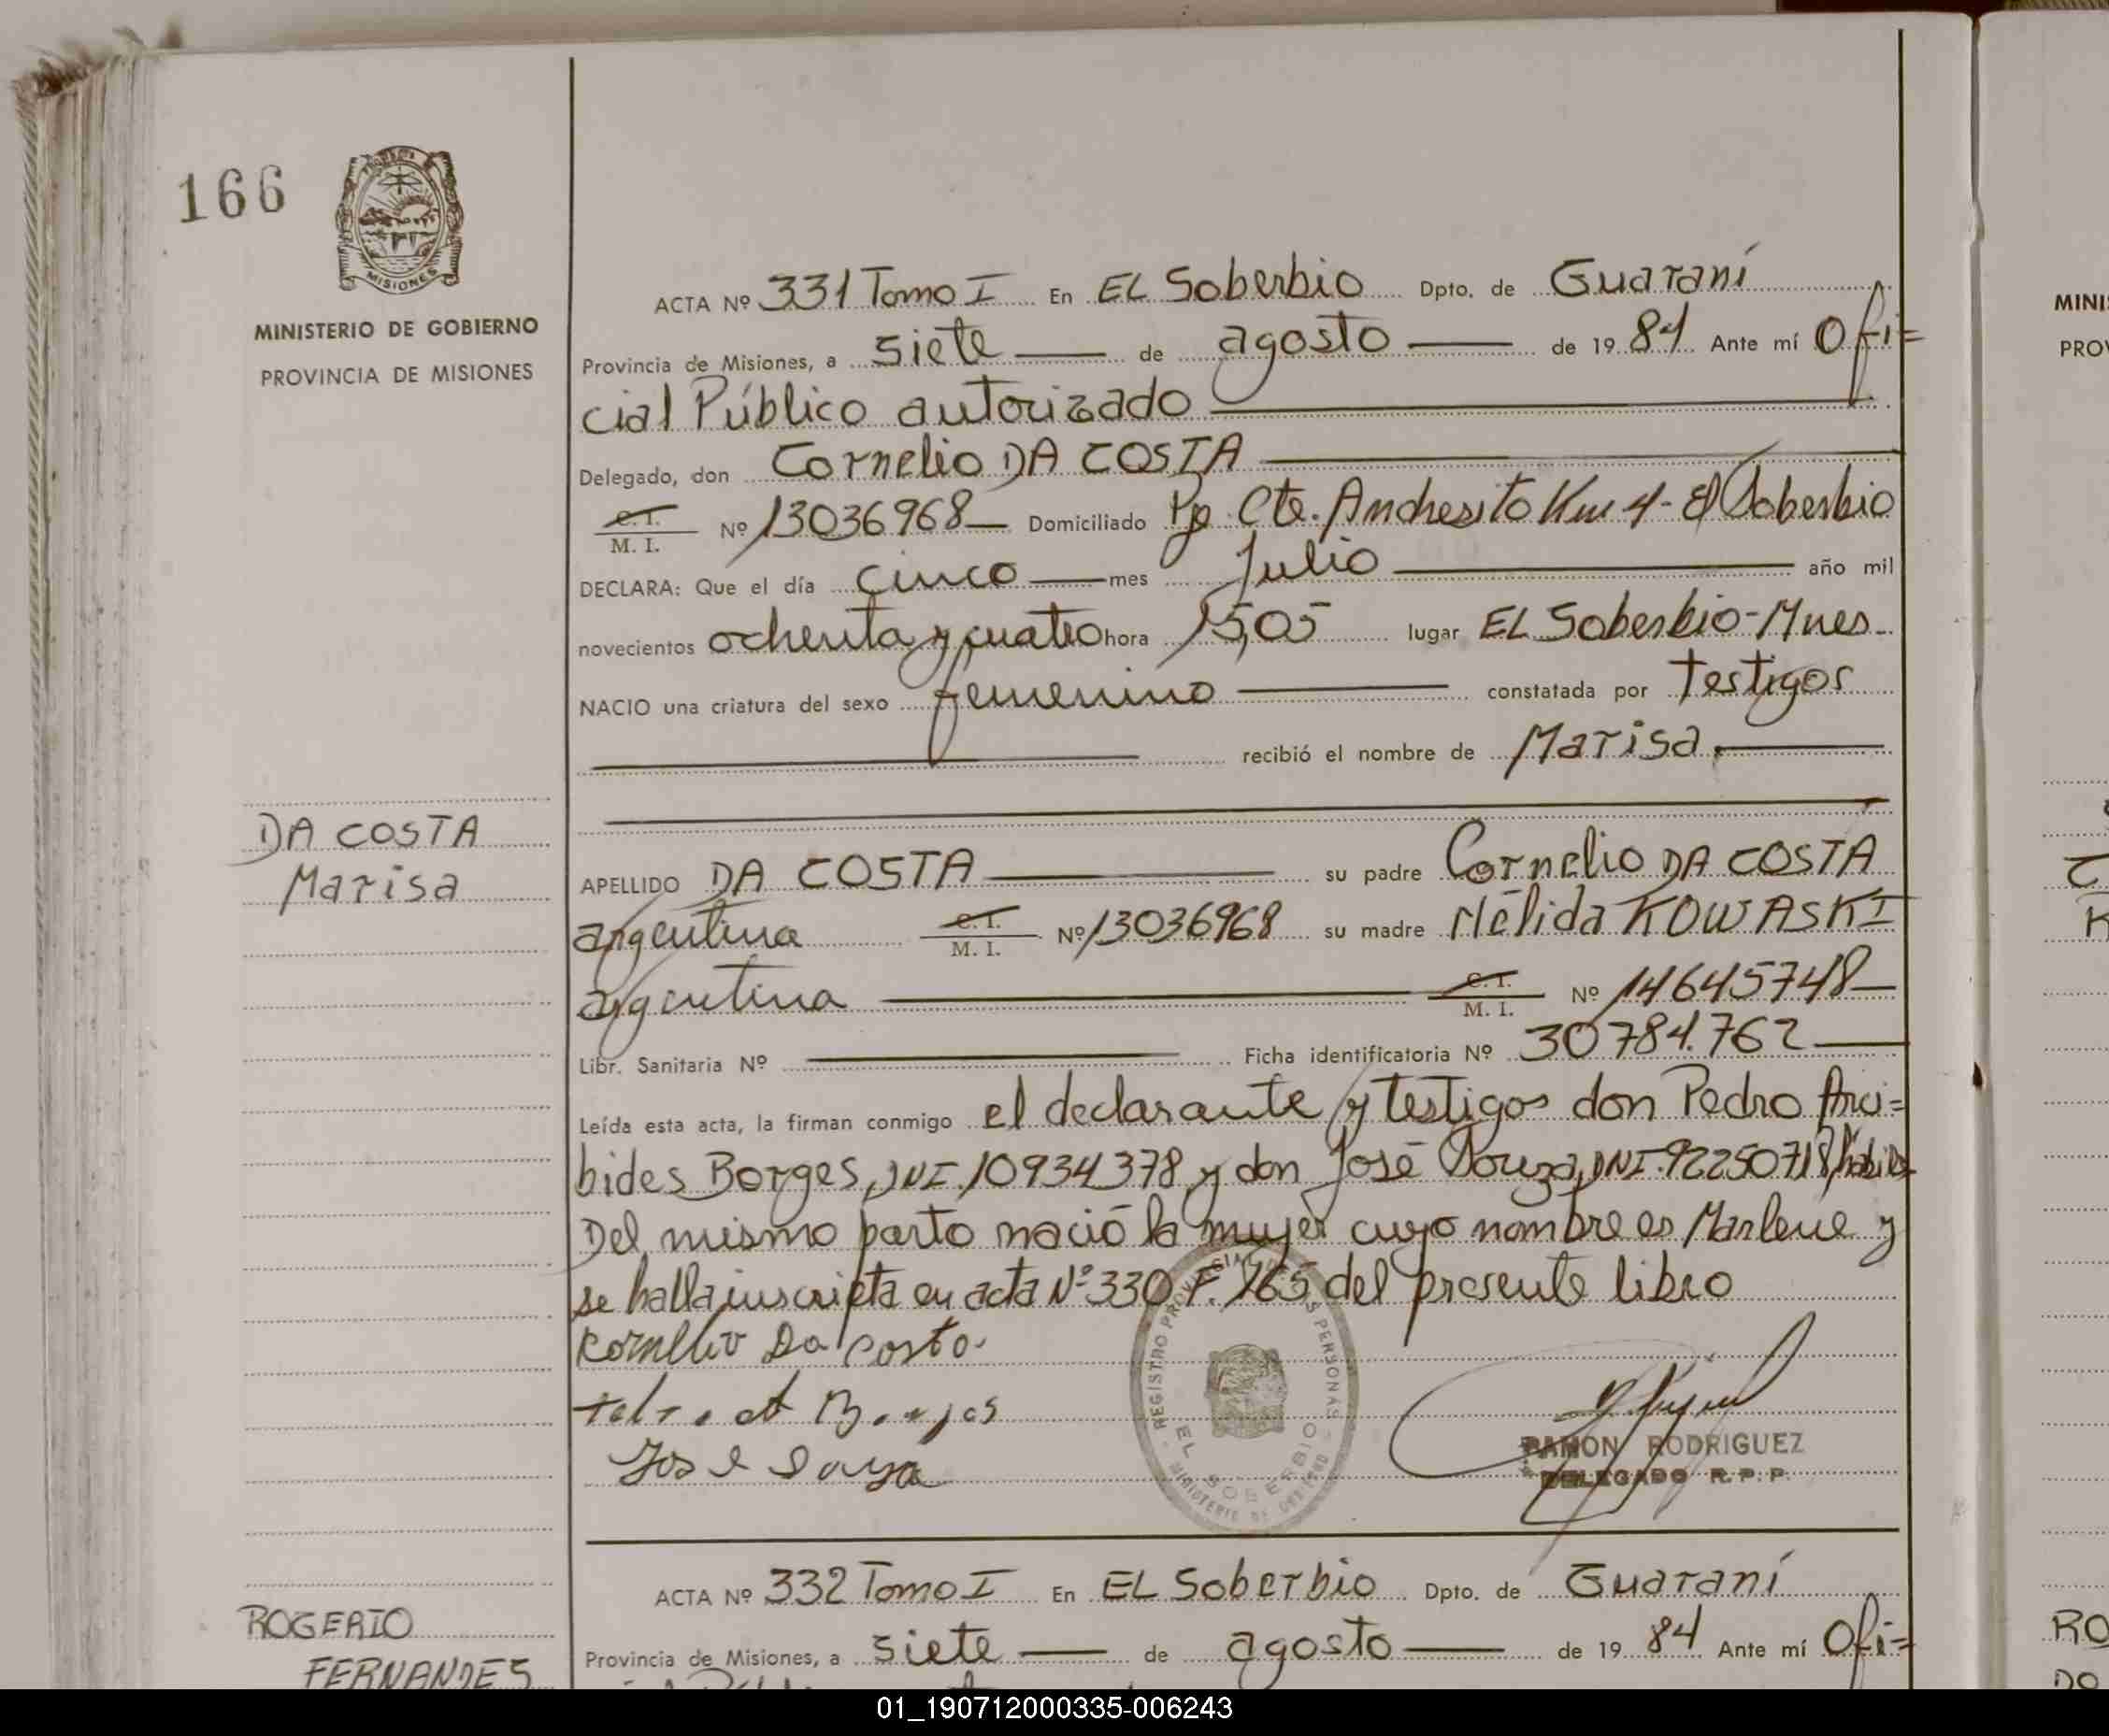 166
MISIONES
MINISTERIO DE GOBIERNO
PROVINCIA DE MISIONES
DA COSTA
Marisa
ACTA Nº 331 Tomo I En EL Soberbio Dpto. de Guaraní
Provincia de Misiones, a siete de agosto de 1984 Ante mí Ofi=
cial Público autorizado
Delegado, don Cornelio DA COSTA
C. I.
M. I. Nº 13036968 Domiciliado Cte. Andresito Km 4 - El Soberbio
DECLARA: Que el día cinco mes Julio año mil
novecientos ochenta y cuatro hora 15,05 lugar EL Soberbio - Mnes
NACIO una criatura del sexo femenino constatada por testigos
recibió el nombre de Marisa.
APELLIDO DA COSTA su padre Cornelio DA COSTA
argentina C. I. M. I. Nº 13036968 su madre Nélida KOWASKI
argentina C. I. M. I. Nº 14645748
Libr. Sanitaria Nº Ficha identificatoria Nº 30784.762
Leída esta acta, la firman conmigo el declarante y testigos don Pedro Arci=
bides Borges, DNI. 10934378 y don José Souza, DNI. 92250718, hábiles
Del mismo parto nació la mujer cuyo nombre es Marlene y
se halla inscripta en acta Nº 330 F. 165 del presente libro
Da Costa
José Souza
REGISTRO PROVINCIAL PERSONAS
EL SOBERBIO
MINISTERIO DE GOBIERNO
RAMON RODRIGUEZ
DELEGADO R. P. P.
ACTA Nº 332 Tomo I En EL Soberbio Dpto. de Guaraní
Provincia de Misiones, a siete de agosto de 1984 Ante mí Ofi=
ROGERIO
FERNANDES
MINI
PRO
RO
DO
01_190712000335-006243